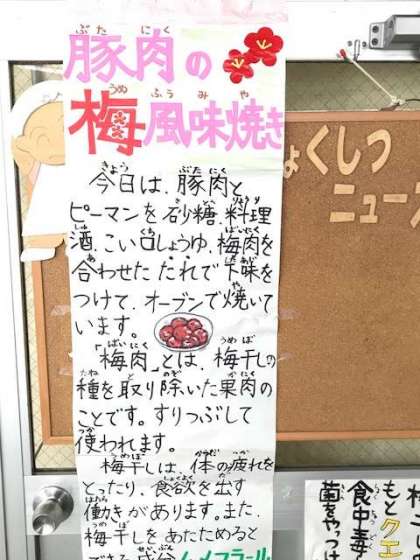 豚肉の
梅風味焼き
今日は、豚肉と
ピーマンを砂糖、料理
酒、こい口しょうゆ、梅肉を
合わせたたれで下味を
つけて、オーブンで焼いて
います。
「梅肉」とは、梅干しの
種を取り除いた果肉の
ことです。すりつぶして
使われます。
梅干しは、体の疲れを
とったり、食欲を出す
働きがあります。また、
梅干しをあたためると
できる成分ムメフラール
くしつ
ニュース
もとクエ
食中毒
菌をやっつけ